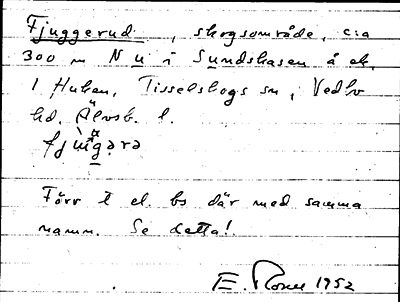 Fjuggerud, skogsområde, c:a
300 m N u i Sundshasen å ek.
1 Huken, Tisselskogs sn, Vedbo
hd. Älvsb. l.
Förr t el. bs där med samma
namn. Se detta!
E. Rosell 1952